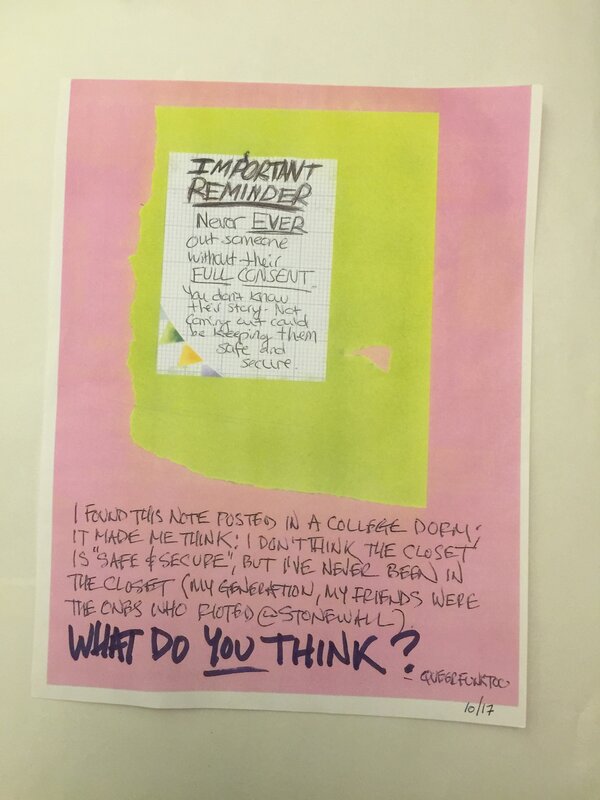 IMPORTANT
REMINDER
Never EVER
out someone
without their
FULL CONSENT.
You don't know
their story. Not
coming out could
be keeping them
safe and
secure.
I FOUND THIS NOTE POSTED IN A COLLEGE DORM;
IT MADE ME THINK: I DON'T THINK THE CLOSET
IS "SAFE & SECURE", BUT I'VE NEVER BEEN IN
THE CLOSET (MY GENERATION, MY FRIENDS WERE
THE ONES WHO RIOTED @ STONEWALL).
WHAT DO YOU THINK?
10/17